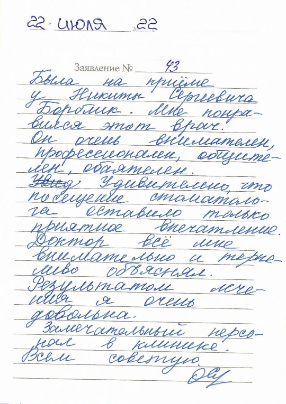 22 июля 22
Заявление № 43
Была на приёме
у Никиты Сергеевича
Борблик. Мне понра-
вился этот врач.
Он очень внимателен,
профессионален, общите-
лен, обаятелен.
Удивительно, что
посещение стоматоло-
га оставило только
приятное впечатление.
Доктор всё мне
внимательно и терпе-
ливо объяснял.
Результатом лече-
ния я очень
довольна.
Замечательный персо-
нал в клинике.
Всем советую.